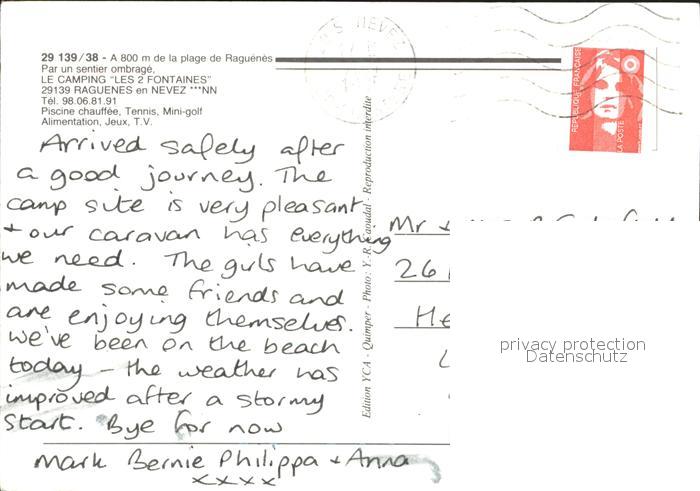 29 139/38 - A 800 m de la plage de Raguénès
Par un sentier ombragé,
LE CAMPING "LES 2 FONTAINES"
29139 RAGUENES en NEVEZ ***NN
Tél. 98.06.81.91
Piscine chauffée, Tennis, Mini-golf
Alimentation, Jeux, T.V.
Arrived safely after
a good journey. The
camp site is very pleasant
+ our caravan has everything
we need. The girls have
made some friends and
are enjoying themselves.
We've been on the beach
today – the weather has
improved after a stormy
start. Bye for now
Mark Bernie Philippa + Anna
xxxx
Edition YCA - Quimper - Photo: Y.-R. Caoudal - Reproduction interdite
NEVEZ
REPUBLIQUE FRANÇAISE
LA POSTE
Mr +
26
He
privacy protection
Datenschutz